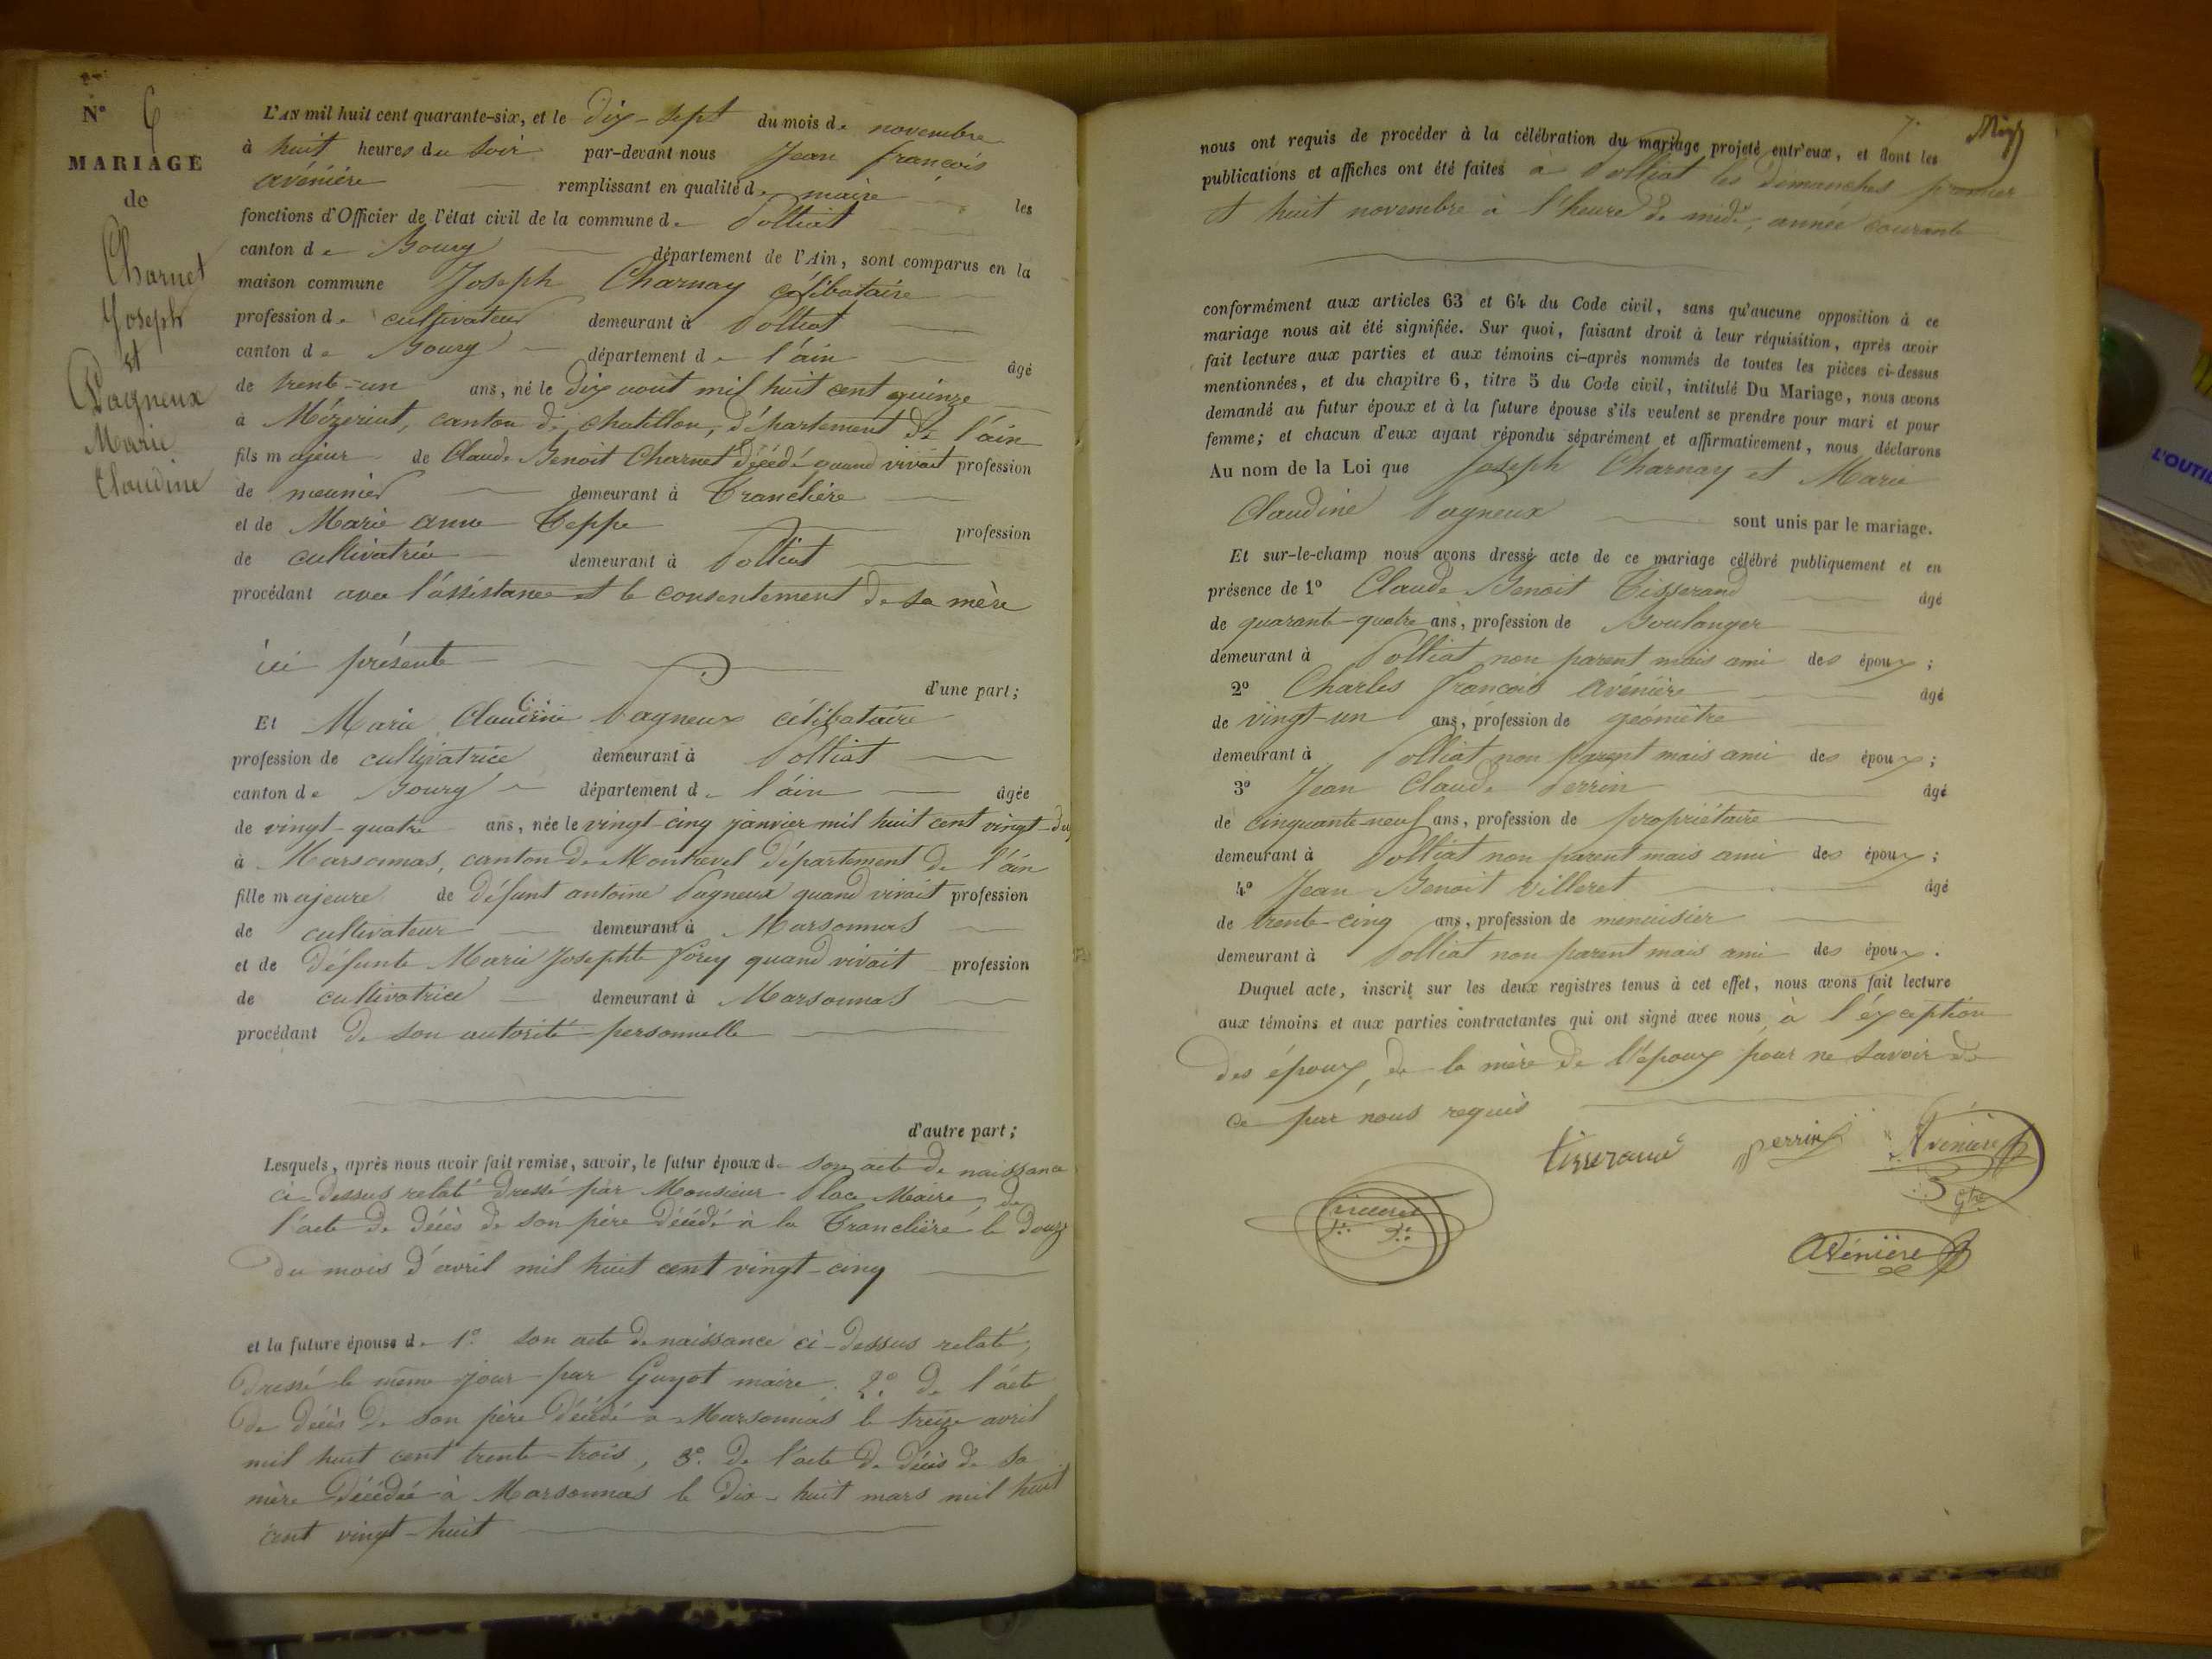 N° 6
MARIAGE
de
Charnet
Joseph
et
Pagneux
Marie
Claudine
L'AN mil huit cent quarante-six, et le dix-sept du mois de novembre
à huit heures du soir par-devant nous Jean françois
avénière remplissant en qualité de maire les
fonctions d'Officier de l'état civil de la commune de Polliat
canton de Bourg département de l'Ain, sont comparus en la
maison commune Joseph Charnay célibataire
profession de cultivateur demeurant à Polliat
canton de Bourg département de l'ain âgé
de trente-un ans, né le dix août mil huit cent quinze
à Mézeriat, canton de chatillon, département de l'ain
fils majeur de Claude Benoit Charnet décédé quand vivait profession
de meunier demeurant à Tranclière
et de Marie anne Teppe profession
de cultivatrice demeurant à Polliat
procédant avec l'assistance et le consentement de sa mère
ici présente
d'une part;
Et Marie Claudine Pagneux célibataire
profession de cultivatrice demeurant à Polliat
canton de Bourg département de l'ain âgée
de vingt-quatre ans, née le vingt-cinq janvier mil huit cent vingt-deux
à Marsonnas, canton de Montrevel département de l'ain
fille majeure de défunt antoine Pagneux quand vivait profession
de cultivateur demeurant à Marsonnas
et de défunte Marie Josephte forey quand vivait profession
de cultivatrice demeurant à Marsonnas
procédant de son autorité personnelle
d'autre part;
Lesquels, après nous avoir fait remise, savoir, le futur époux de son acte de naissance
ci-dessus relaté dressé par Monsieur Place Maire, de
l'acte de décès de son père décédé à la Tranclière le douze
du mois d'avril mil huit cent vingt-cinq
et la future épouse de 1° son acte de naissance ci-dessus relaté,
dressé le même jour par Guyot maire. 2° de l'acte
de décès de son père décédé à Marsonnas le treize avril
mil huit cent trente-trois, 3° de l'acte de décès de sa
mère décédée à Marsonnas le dix-huit mars mil huit
cent vingt-huit
7.
nous ont requis de procéder à la célébration du mariage projeté entr'eux, et dont les
publications et affiches ont été faites à Polliat les dimanches premier
et huit novembre à l'heure de midi, année courante
conformément aux articles 63 et 64 du Code civil, sans qu'aucune opposition à ce
mariage nous ait été signifiée. Sur quoi, faisant droit à leur réquisition, après avoir
fait lecture aux parties et aux témoins ci-après nommés de toutes les pièces ci-dessus
mentionnées, et du chapitre 6, titre 5 du Code civil, intitulé Du Mariage, nous avons
demandé au futur époux et à la future épouse s'ils veulent se prendre pour mari et pour
femme; et chacun d'eux ayant répondu séparément et affirmativement, nous déclarons
Au nom de la Loi que Joseph Charnay et Marie
Claudine Pagneux sont unis par le mariage.
Et sur-le-champ nous avons dressé acte de ce mariage célébré publiquement et en
présence de 1° Claude Benoit Tisserand âgé
de quarante-quatre ans, profession de Boulanger
demeurant à Polliat non parent mais ami des époux;
2° Charles françois avénière âgé
de vingt-un ans, profession de géomètre
demeurant à Polliat non parent mais ami des époux;
3° Jean Claude Perrin âgé
de cinquante-neuf ans, profession de propriétaire
demeurant à Polliat non parent mais ami des époux;
4° Jean Benoit villeret âgé
de trente-cinq ans, profession de menuisier
demeurant à Polliat non parent mais ami des époux.
Duquel acte, inscrit sur les deux registres tenus à cet effet, nous avons fait lecture
aux témoins et aux parties contractantes qui ont signé avec nous à l'exception
des époux, de la mère de l'époux pour ne savoir de
ce par nous requis
tisserand perrin Avénière
Gtre
villeret
Avénière
L'OUTIL